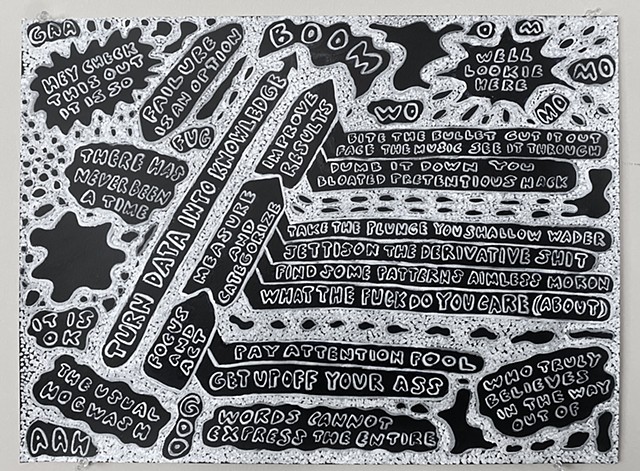 GAA
HEY CHECK
THIS OUT
IT IS SO
FAILURE
IS AN OPTION
FUG
BOOM
O
M
WELL
LOOKIE
HERE
MO
MO
WO
THERE HAS
NEVER BEEN
A TIME
TURN DATA INTO KNOWLEDGE
IMPROVE
RESULTS
BITE THE BULLET GUT IT OUT
FACE THE MUSIC SEE IT THROUGH
DUMB IT DOWN YOU
BLOATED PRETENTIOUS HACK
MEASURE
AND
CATEGORIZE
TAKE THE PLUNGE YOU SHALLOW WADER
JETTISON THE DERIVATIVE SHIT
FIND SOME PATTERNS AIMLESS MORON
WHAT THE FUCK DO YOU CARE (ABOUT)
FOCUS
AND
ACT
PAY ATTENTION FOOL
GET UP OFF YOUR ASS
IT IS
OK
THE USUAL
HOGWASH
AAH
GOO
WORDS CANNOT
EXPRESS THE ENTIRE
WHO TRULY
BELIEVES
IN THE WAY
OUT OF